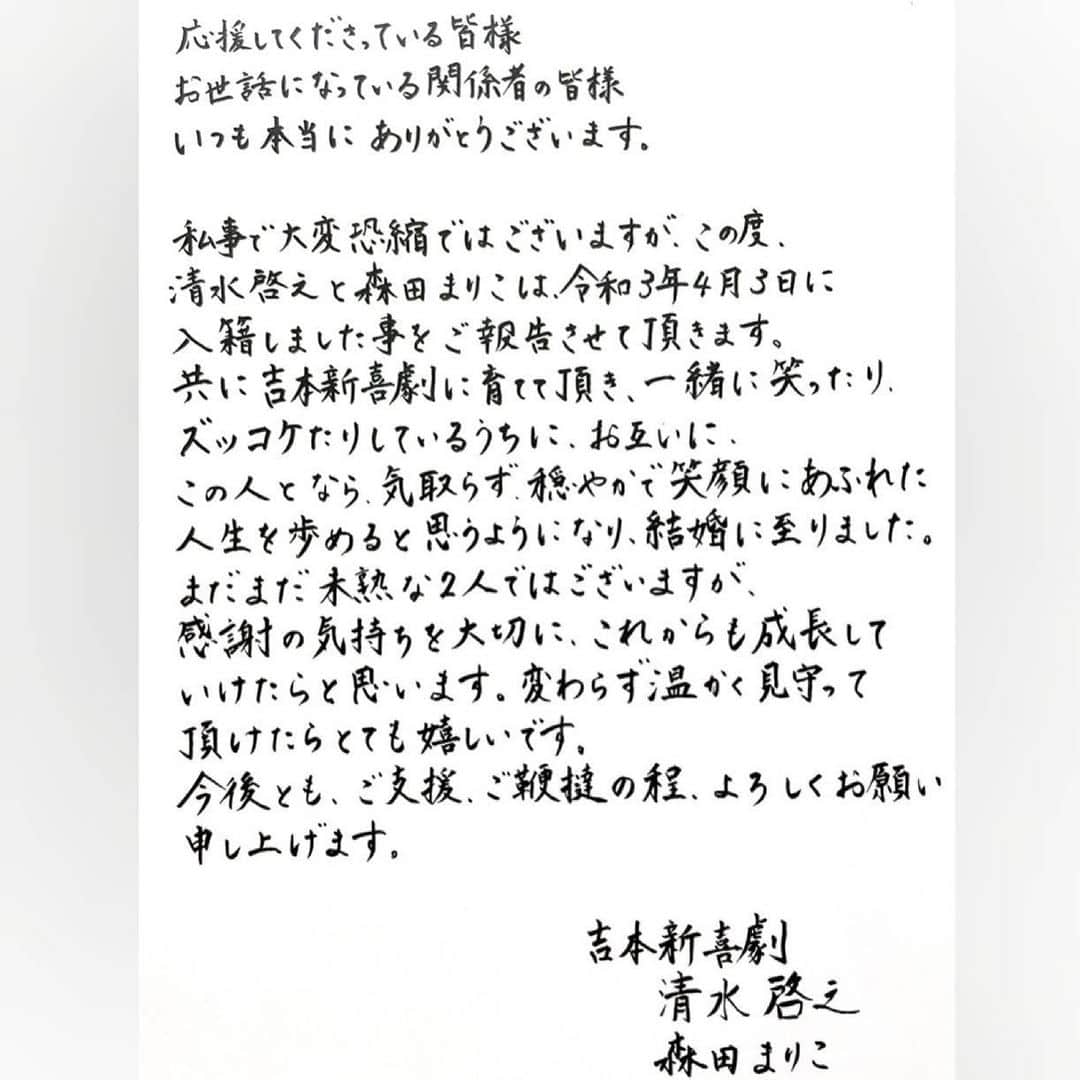 応援してくださっている皆様
お世話になっている関係者の皆様
いつも本当に ありがとうございます。
私事で大変恐縮ではございますが、この度、
清水啓之と森田まりこは、令和3年4月3日に
入籍しました事をご報告させて頂きます。
共に吉本新喜劇に育てて頂き、一緒に笑ったり、
ズッコケたりしているうちに、お互いに、
この人となら、気取らず、穏やかで笑顔にあふれた
人生を歩めると思うようになり、結婚に至りました。
まだまだ未熟な2人ではございますが、
感謝の気持ちを大切に、これからも成長して
いけたらと思います。変わらず温かく見守って
頂けたらとても嬉しいです。
今後とも、ご支援、ご鞭撻の程、よろしくお願い
申し上げます。
吉本新喜劇
清水啓之
森田まりこ